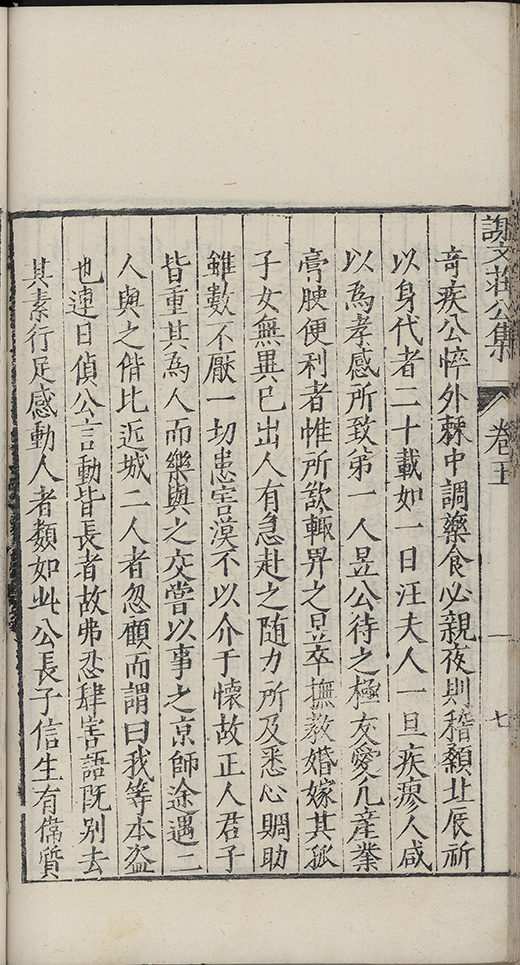 謝文莊公集　卷五　七
奇疾公悴外㷀中調藥食必親夜則稽顙北辰祈
以身代者二十載如一日汪夫人一旦疾瘳人咸
以為孝感所致第一人昱公待之極友愛凡產業
膏腴便利者惟所欲輒畀之昱卒撫教婚嫁其孤
子女無異己出人有急赴之隨力所及悉心賙助
雖數不厭一切患害漠不以介于懷故正人君子
皆重其為人而樂與之交嘗以事之京師途遇二
人與之偕比近城二人者忽顧而謂曰我等本盜
也連日偵公言動皆長者故弗忍肆害語既別去
其素行足感動人者類如此公長子信生有儁質